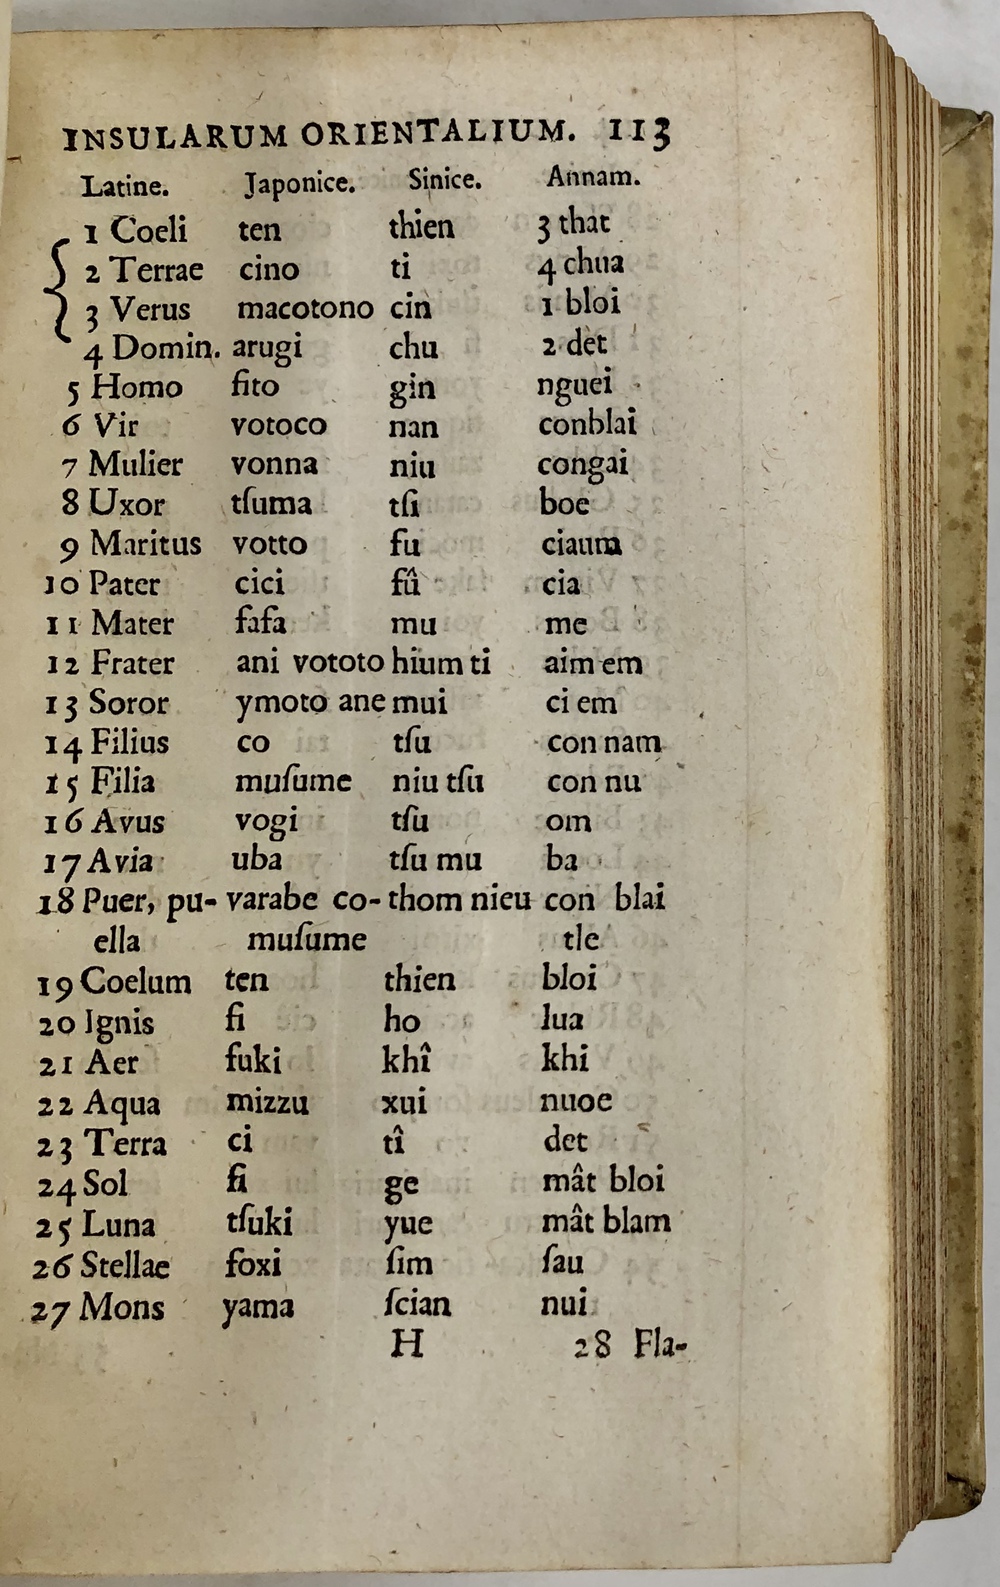 INSULARUM ORIENTALIUM. 113
Latine. Japonice. Sinice. Annam.
1 Coeli ten thien 3 that
2 Terrae cino ti 4 chua
3 Verus macotono cin 1 bloi
4 Domin. arugi chu 2 det
5 Homo fito gin nguei
6 Vir votoco nan conblai
7 Mulier vonna niu congai
8 Uxor tſuma tſi boe
9 Maritus votto fu ciaum
10 Pater cici fû cia
11 Mater fafa mu me
12 Frater ani vototo hium ti aim em
13 Soror ymoto ane mui ci em
14 Filius co tſu con nam
15 Filia muſume niu tſu con nu
16 Avus vogi tſu om
17 Avia uba tſu mu ba
18 Puer, pu- varabe co- thom nieu con blai
ella muſume tle
19 Coelum ten thien bloi
20 Ignis fi ho lua
21 Aer fuki khî khi
22 Aqua mizzu xui nuoe
23 Terra ci tî det
24 Sol fi ge mât bloi
25 Luna tſuki yue mât blam
26 Stellae foxi ſim ſau
27 Mons yama ſcian nui
H 28 Fla-